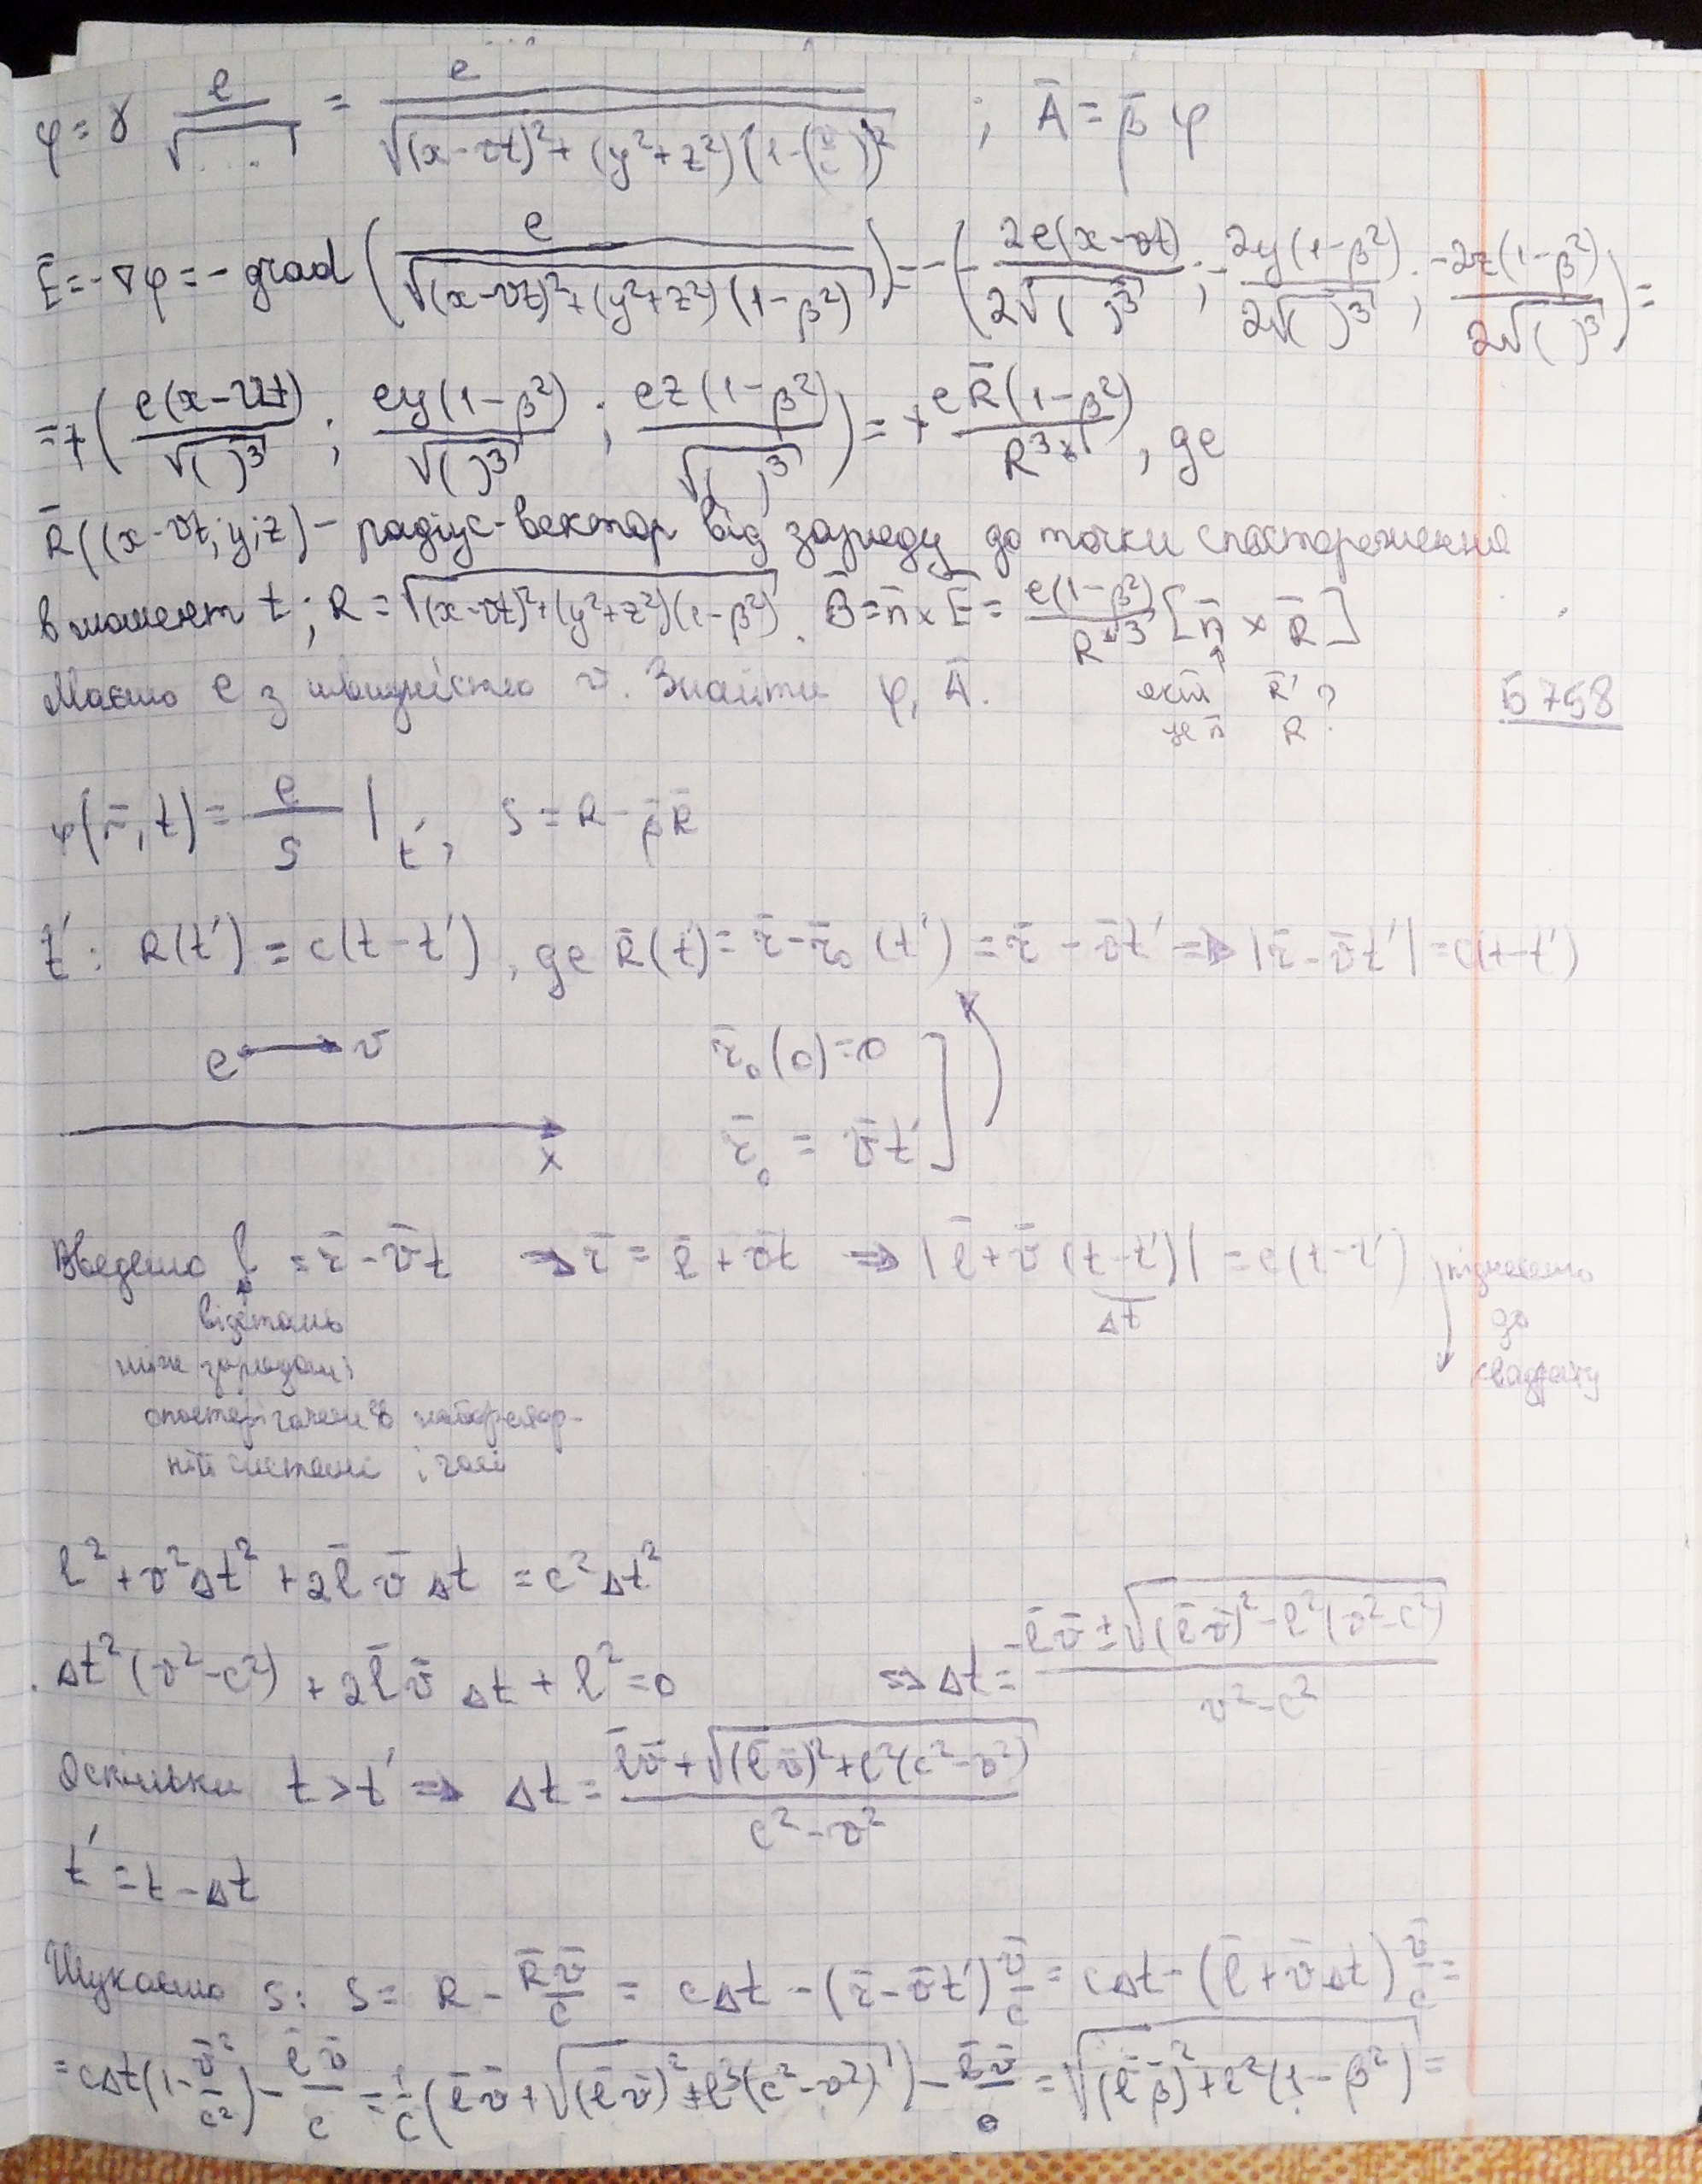 φ = γ e/√(...) = e/√((x-vt)²+(y²+z²)(1-(v/c))²) ; Ā = β̄ φ
Ē = -∇φ = -grad (e/√((x-vt)²+(y²+z²)(1-β²))) = -(-2e(x-vt)/2√( )³ ; -2y(1-β²)/2√( )³ ; -2z(1-β²)/2√( )³) =
= +(e(x-vt)/√( )³ ; ey(1-β²)/√( )³ ; ez(1-β²)/√( )³) = + eR̄(1-β²)/R³* , де
R̄((x-vt; y; z) - радіус-вектор від заряду до точки спостереження
в момент t; R = √((x-vt)²+(y²+z²)(1-β²)). B̄ = n̄ × Ē = e(1-β²)/R*³ [n̄ × R̄]
Маємо e з швидкістю v̄. Знайти φ, Ā. який R̄'?
це n̄ R?
Б 758
φ(r̄, t) = e/S |t' , S = R - β̄R̄
t': R(t') = c(t-t'), де R̄(t') = r̄ - r̄₀(t') = r̄ - v̄t' => |r̄ - v̄t'| = c(t-t')
e → v̄
r̄₀(0) = 0
x̄
r̄₀ = v̄t'
Введемо l̄ = r̄ - v̄t => r̄ = l̄ + v̄t => |l̄ + v̄(t-t')| = c(t-t')
Δt
піднесемо
до
квадрату
відстань
між зарядом і
спостерігачем в лаборатор-
ній системі і часі
l² + v²Δt² + 2l̄v̄Δt = c²Δt²
Δt²(v²-c²) + 2l̄v̄Δt + l² = 0 => Δt = (-l̄v̄ ± √((l̄v̄)² - l²(v²-c²)))/(v²-c²)
Оскільки t > t' => Δt = (l̄v̄ + √((l̄v̄)² + l²(c²-v²)))/(c²-v²)
t' = t - Δt
Шукаємо S: S = R - R̄v̄/c = cΔt - (r̄ - v̄t') v̄/c = cΔt - (l̄ + v̄Δt) v̄/c =
= cΔt(1 - v̄²/c²) - l̄v̄/c = 1/c (l̄v̄ + √((l̄v̄)² + l²(c²-v²))) - l̄v̄/c = √((l̄β̄)² + l²(1-β²)) =